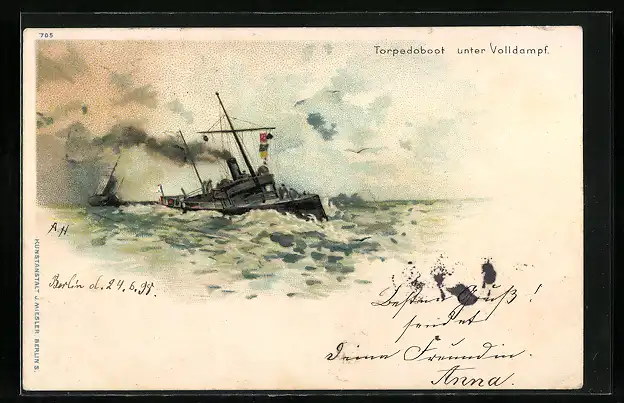 705
Torpedoboot unter Volldampf.
AH
KUNSTANSTALT J. MIESLER, BERLIN S.
Berlin d. 24.6.98.
Besten Gruß!
sendet
Deine Freundin.
Anna.